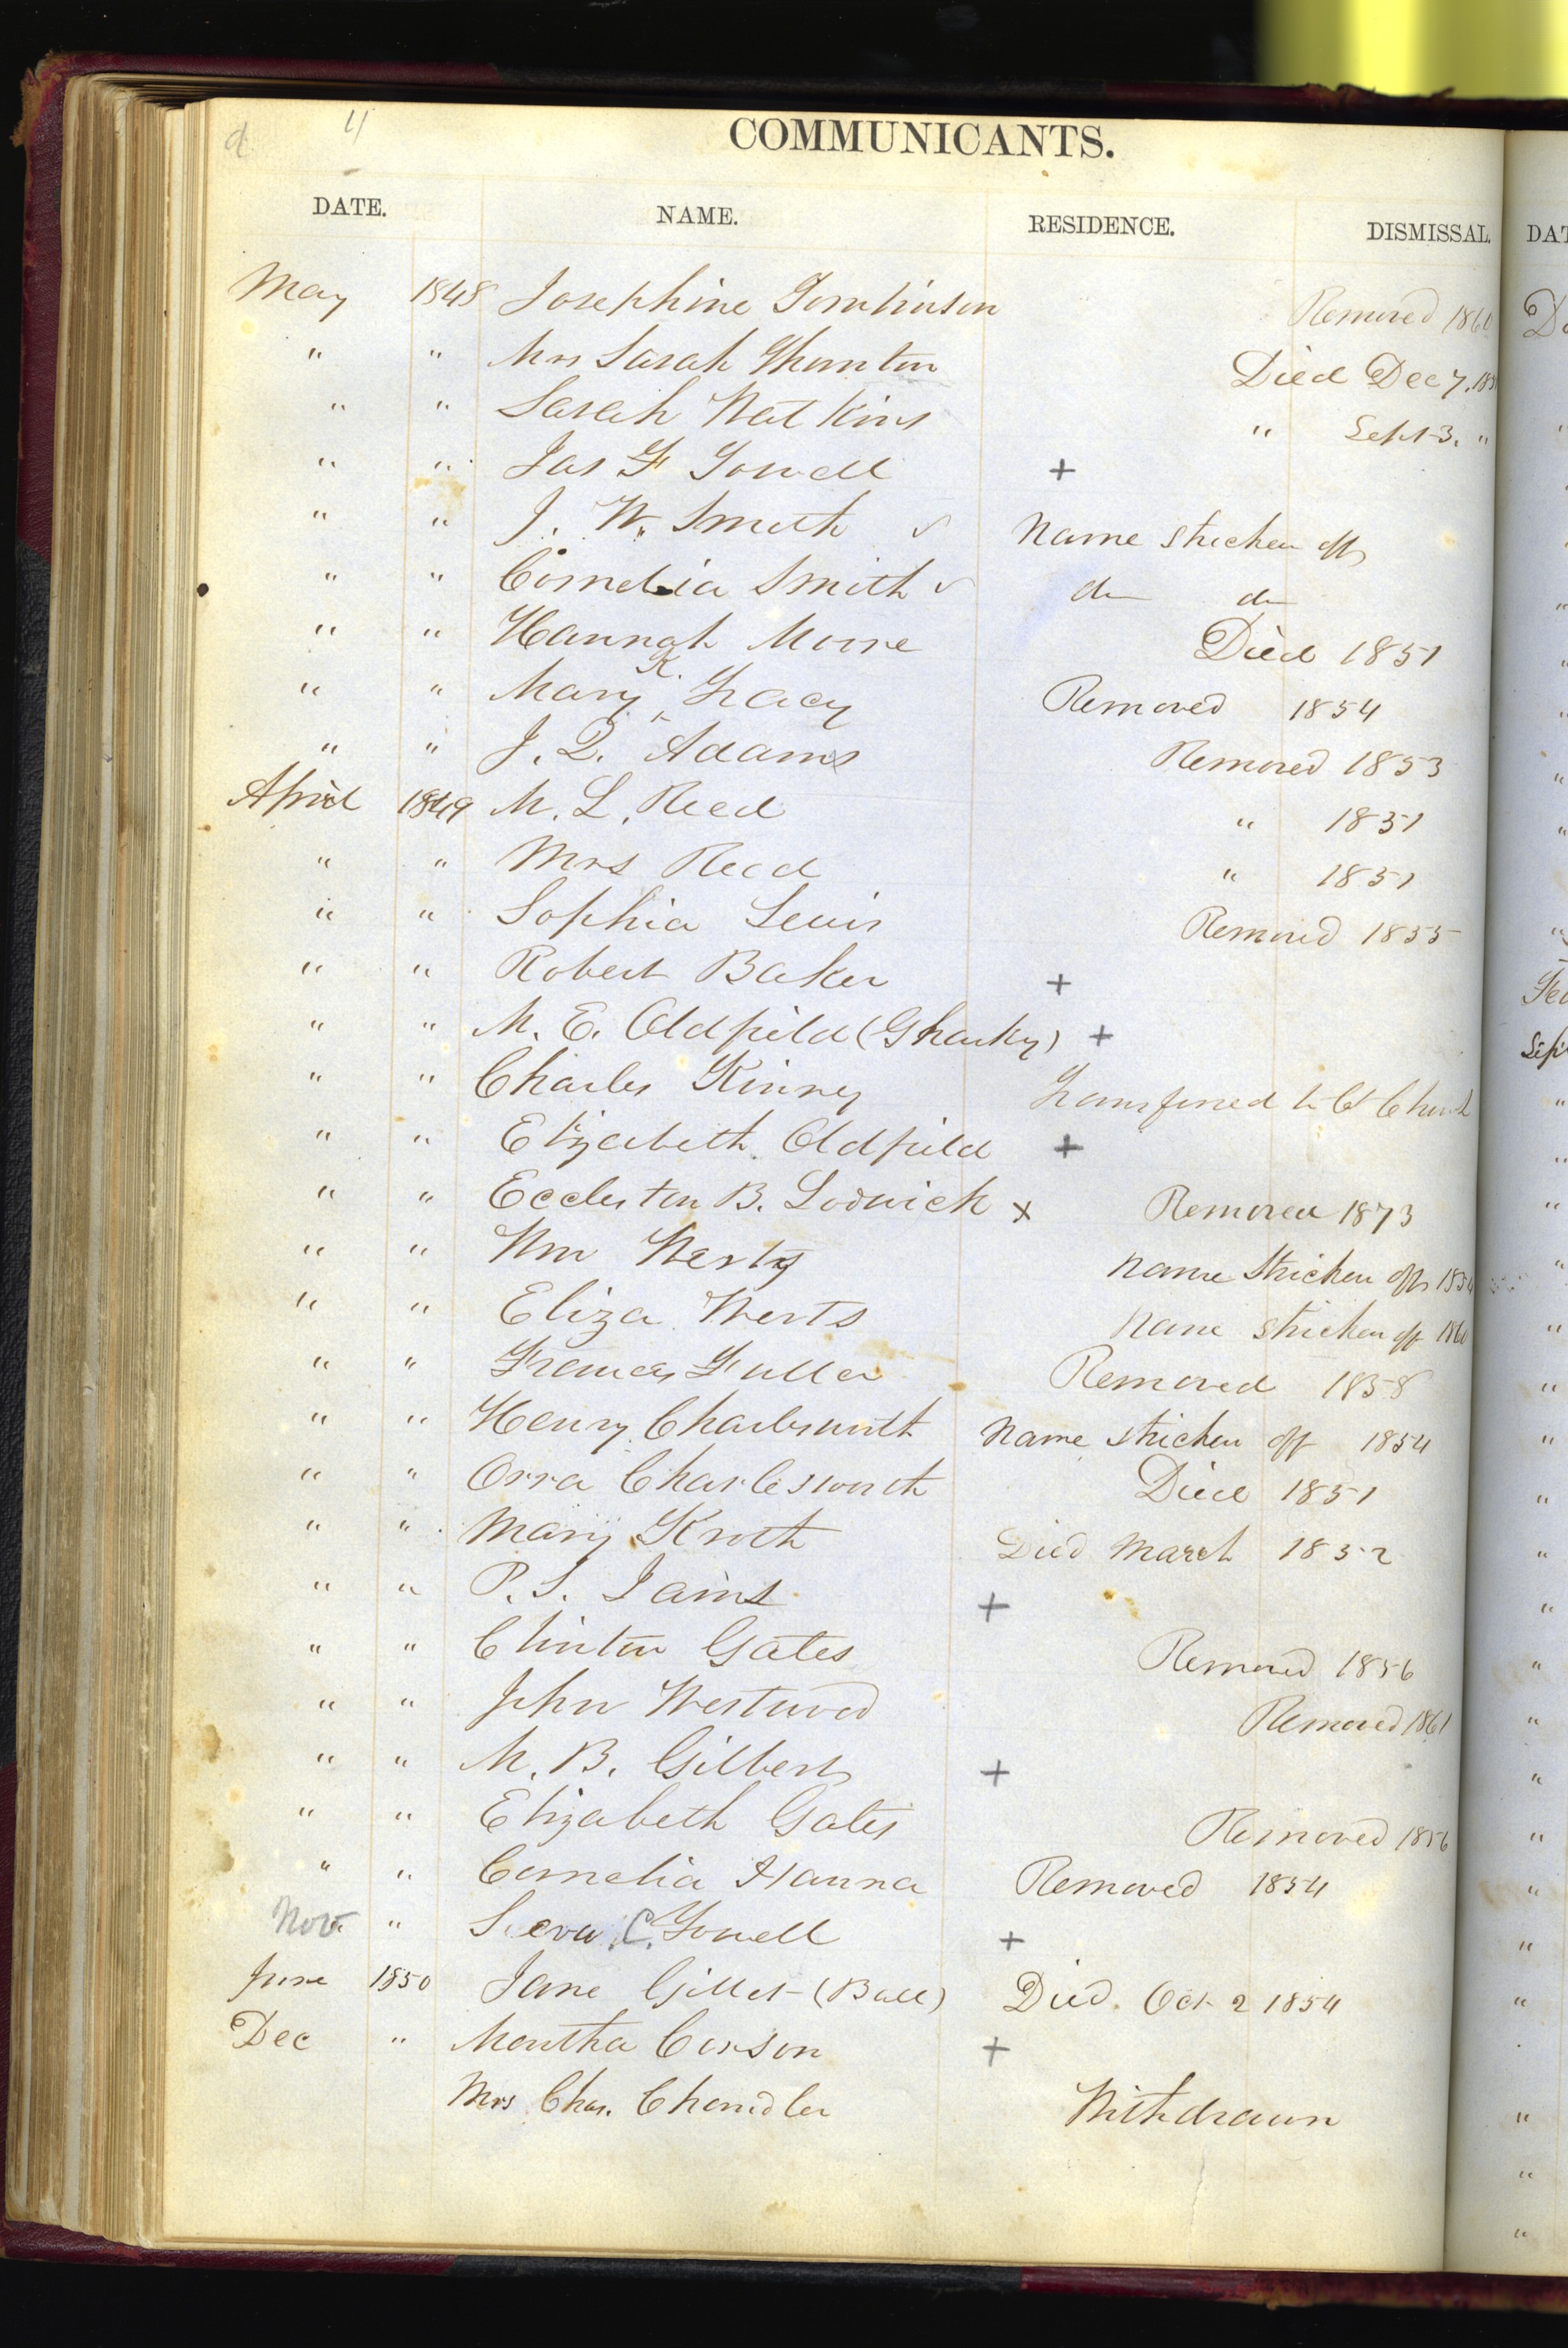 4
COMMUNICANTS.
DATE. NAME. RESIDENCE. DISMISSAL. DAT
May 1848 Josephine Tomlinson Removed 1860
" " Mrs Sarah Thornton Died Dec 7.
" " Sarah Watkins " Sept 3. "
" " Jas F Towell +
" " J. W. Smith ✓ Name stricken off
" " Cornelia Smith ✓ do do
" " Hannah Moore Died 1851
" " Mary K. Tracy Removed 1854
" " J. Q. Adams Removed 1853
April 1849 M. L. Reed " 1851
" " Mrs Reed " 1851
" " Sophia Lewis Removed 1855
" " Robert Baker +
" " M. E. Oldfield (Gharky) +
" " Charles Kinney Transferred to Ct Church
" " Elizabeth Oldfield +
" " Eccleston B. Lodwick x Removed 1873
" " Wm Werts Name stricken off 1854
" " Eliza Werts Name stricken off 1860
" " Frances Fuller Removed 1858
" " Henry Charlesworth Name stricken off 1854
" " Orra Charlesworth Died 1851
" " Mary Kroth Died March 1852
" " P. S. Iams +
" " Clinton Gates Removed 1856
" " John Westwood Removed 1861
" " M. B. Gilbert +
" " Elizabeth Gates Removed 1856
" " Cornelia Hanna Removed 1854
Nov " C. Towell +
June 1850 Jane Gillet (Ball) Died. Oct 2 1854
Dec " Martha Corson +
Mrs Chas. Chandler Withdrawn